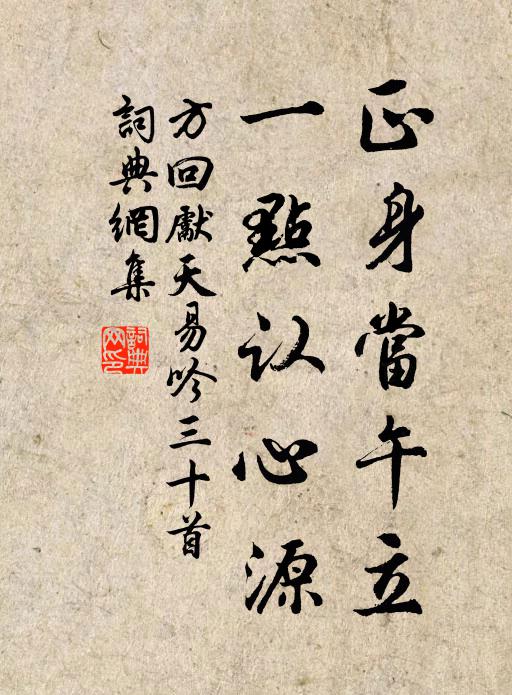 正身當午立
一點認心源
方回獻天易吟三十首
詞典網集
詞典
网印